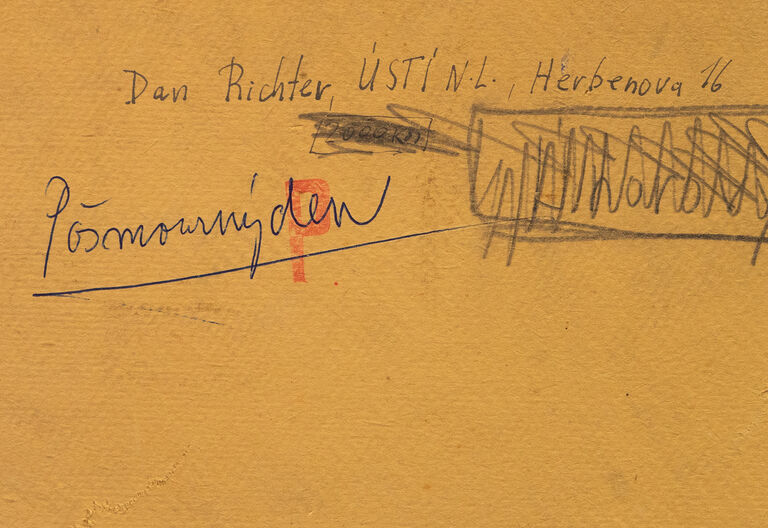 Dan Richter, ÚSTÍ N.L., Herbenova 16
7000 kčs
Pošmournýden
P